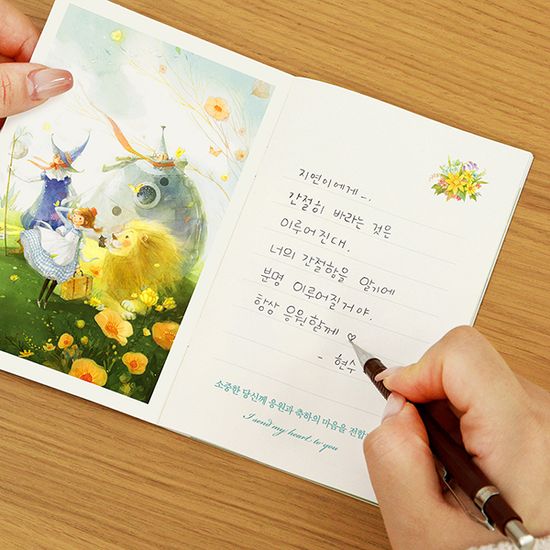 지연이에게ㅡ.
간절히 바라는 것은
이루어진대.
너의 간절함을 알기에
분명 이루어질거야.
항상 응원할께 ♡
- 현수
소중한 당신께 응원과 축하의 마음을 전합
I send my heart to you